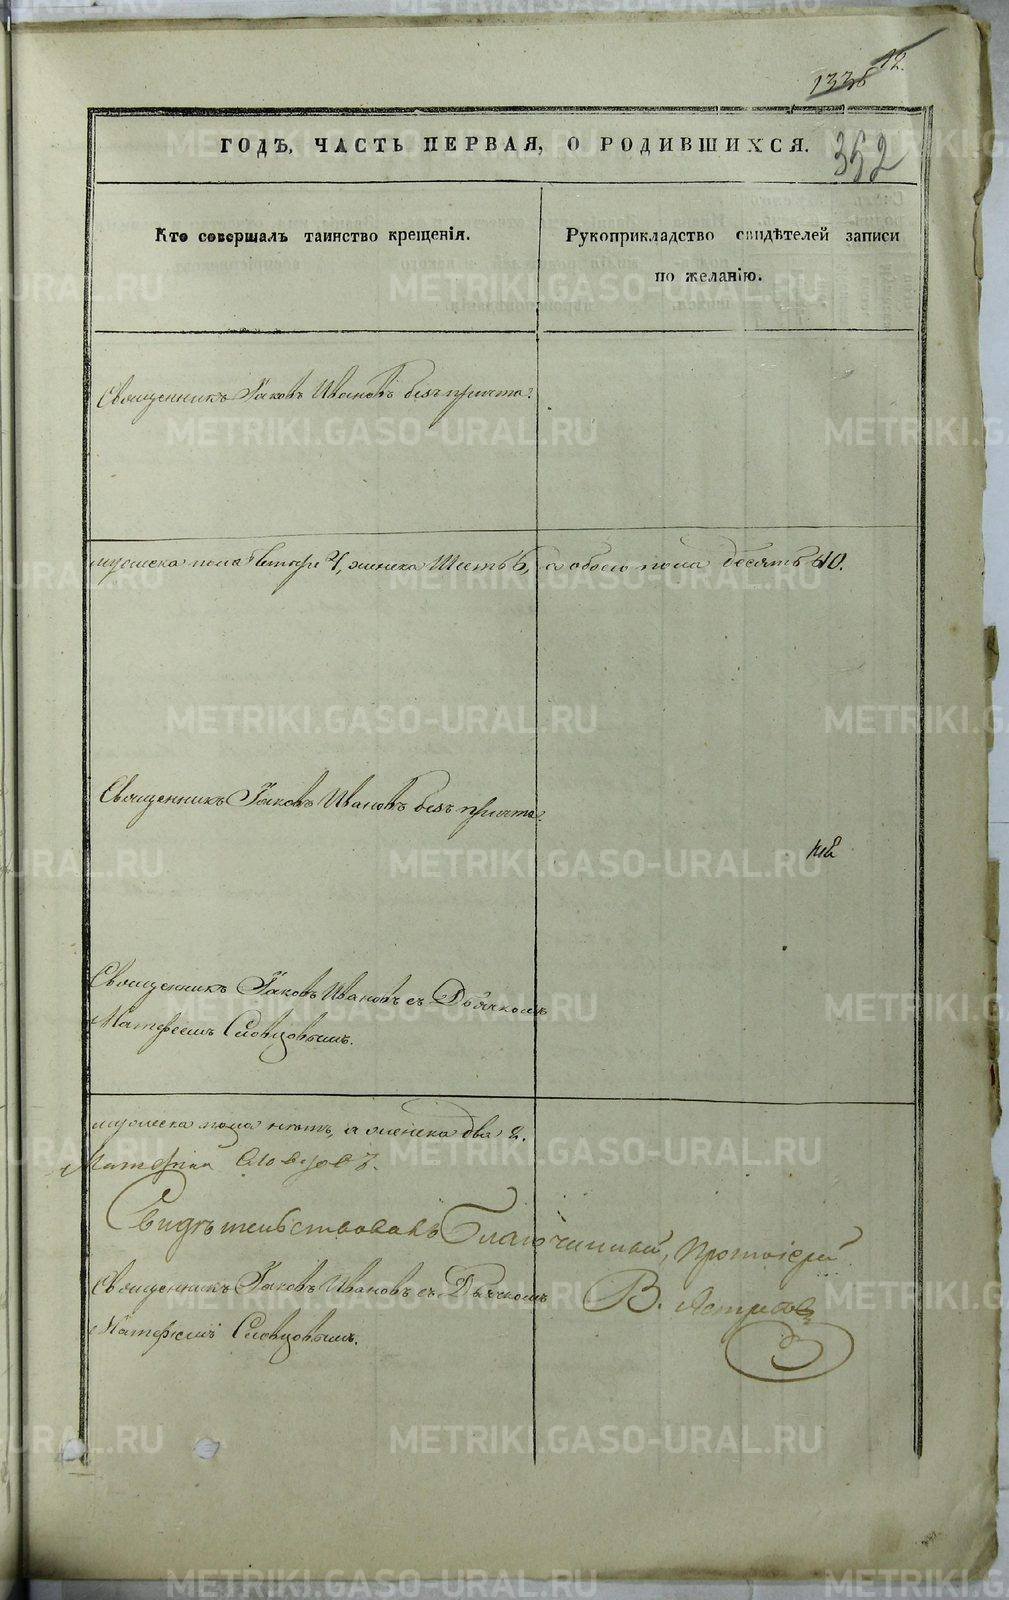 12.
1338
352
ГОДѢ, ЧАСТЬ ПЕРВАЯ, О РОДИВШИХСЯ.
Кто совершалъ таинство крещенія.
Рукоприкладство свидѣтелей записи
по желанію.
Священникъ Іаковъ Ивановъ безъ причта.
мужеска пола четыре 4, женска Шесть 6, а обоего пола десять 10.
Священникъ Іаковъ Ивановъ безъ причта.
Священникъ Іаковъ Ивановъ съ Дьячкомъ
Матфеемъ Словцовымъ.
мужеска пола нѣтъ, а женска два 2.
Матфій Словцовъ.
Свидѣтельствовалъ Благочинный, Протоіерей
В.
Священникъ Іаковъ Ивановъ съ Дьячкомъ
Матфеемъ Словцовымъ.
METRIKI.GASO-URAL.RU